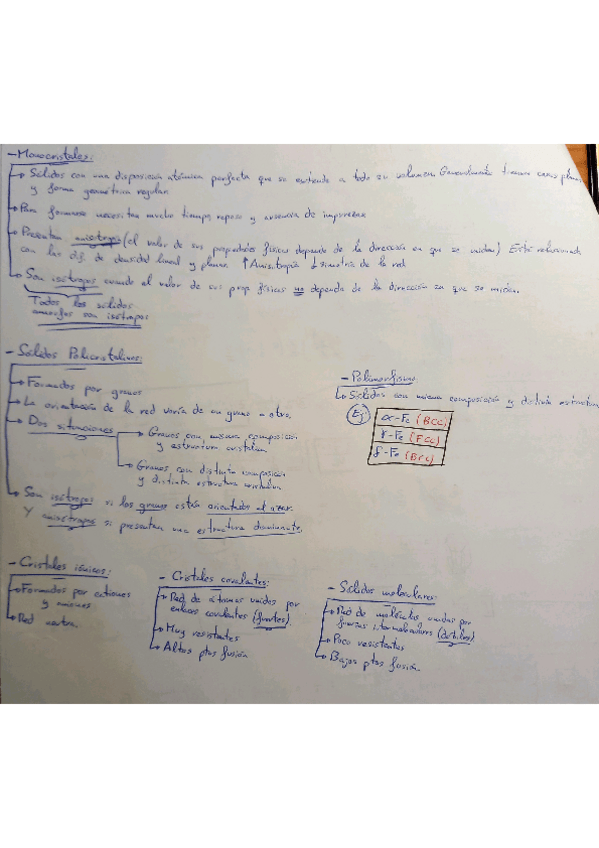 - Monocristales:
Sólidos con una disposición atómica perfecta que se extiende a todo su volumen. Generalmente tienen caras planas
y forma geométrica regular.
Para formarse necesitan mucho tiempo, reposo y ausencia de impurezas
Presentan anisotropía (el valor de sus propiedades físicas depende de la dirección en que se midan) Está relacionada
con las dif. de densidad lineal y planar ↑ Anisotropía ↓ simetría de la red
Son isótropos cuando el valor de sus prop físicas no depende de la dirección en que se midan.
Todos los sólidos
amorfos son isótropos
- Sólidos Policristalinos:
Formados por granos
La orientación de la red varía de un grano a otro.
Dos situaciones
Granos con misma composición
y estructura cristalina
Granos con distinta composición
y distinta estructura cristalina
Son isótropos si los granos están orientados al azar.
Y anisótropos si presentan una estructura dominante.
- Polimorfismo
Sólidos con misma composición y distinta estructura
Ej
α-Fe (BCC)
γ-Fe (FCC)
δ-Fe (BCC)
- Cristales iónicos:
Formados por cationes
y aniones
Red neutra.
- Cristales covalentes:
Red de átomos unidos por
enlaces covalentes (fuertes).
Muy resistentes
Altos ptos fusión
- Sólidos moleculares:
Red de moléculas unidas por
fuerzas intermoleculares (débiles)
Poco resistentes
Bajos ptos fusión.